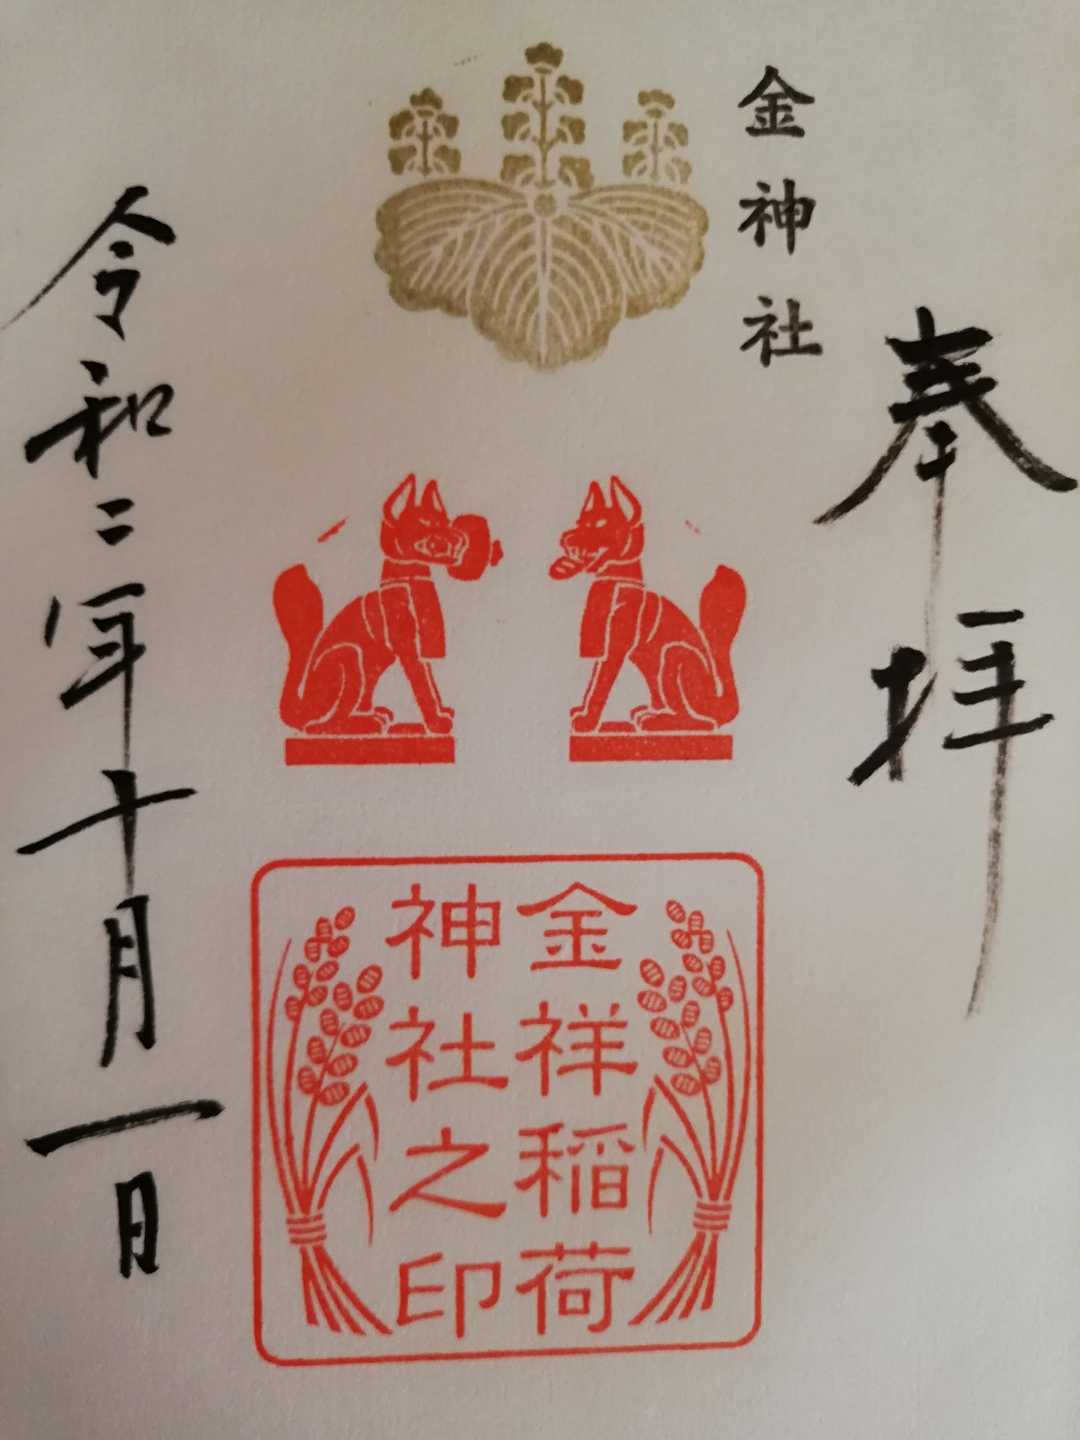 奉拝
金神社
金祥稲荷
神社之印
令和二年十月一日